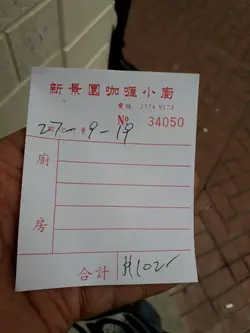 新景園咖喱小廚
電話 2574 9173
№ 34050
27-9-19
廚
房
合計 $102